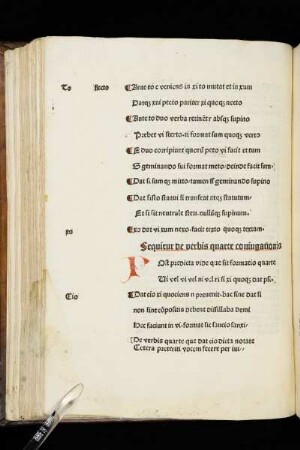 To flecto Ante to c veniens in xi to mutat et in xum
Passꝫ xui pecto pariter xi quoqꝫ necto
Ante to duo verba retinēt absqꝫ supino
Prebet vi sterto ti format sum quoqꝫ verto
E duo corripiunt quoꝝ peto vi facit et tum
S geminando sui format meto deinde facit sum
Dat si sum mitto tamen s geminando supino
Dat sisto statui si transeat atqꝫ statutum
Et si sit neutrale steti nullūqꝫ supinum
xo Xo dat vi xum nexo facit texo quoqꝫ textum
Sequitur de verbis quarte coniugationis
Post predicta vide que sit formatio quarte
Ui vel vi vel ni vel ri si xi quoqꝫ dat psi
Cio Dat cio xi quociens n preuenit hac sine dat si
non sint cōposita debent dissillaba demi
Hec faciunt in vi format sic sancio sanxi
De verbis quarte que dat cio dicta notate
Cetera preteriti vocem fecere per iui